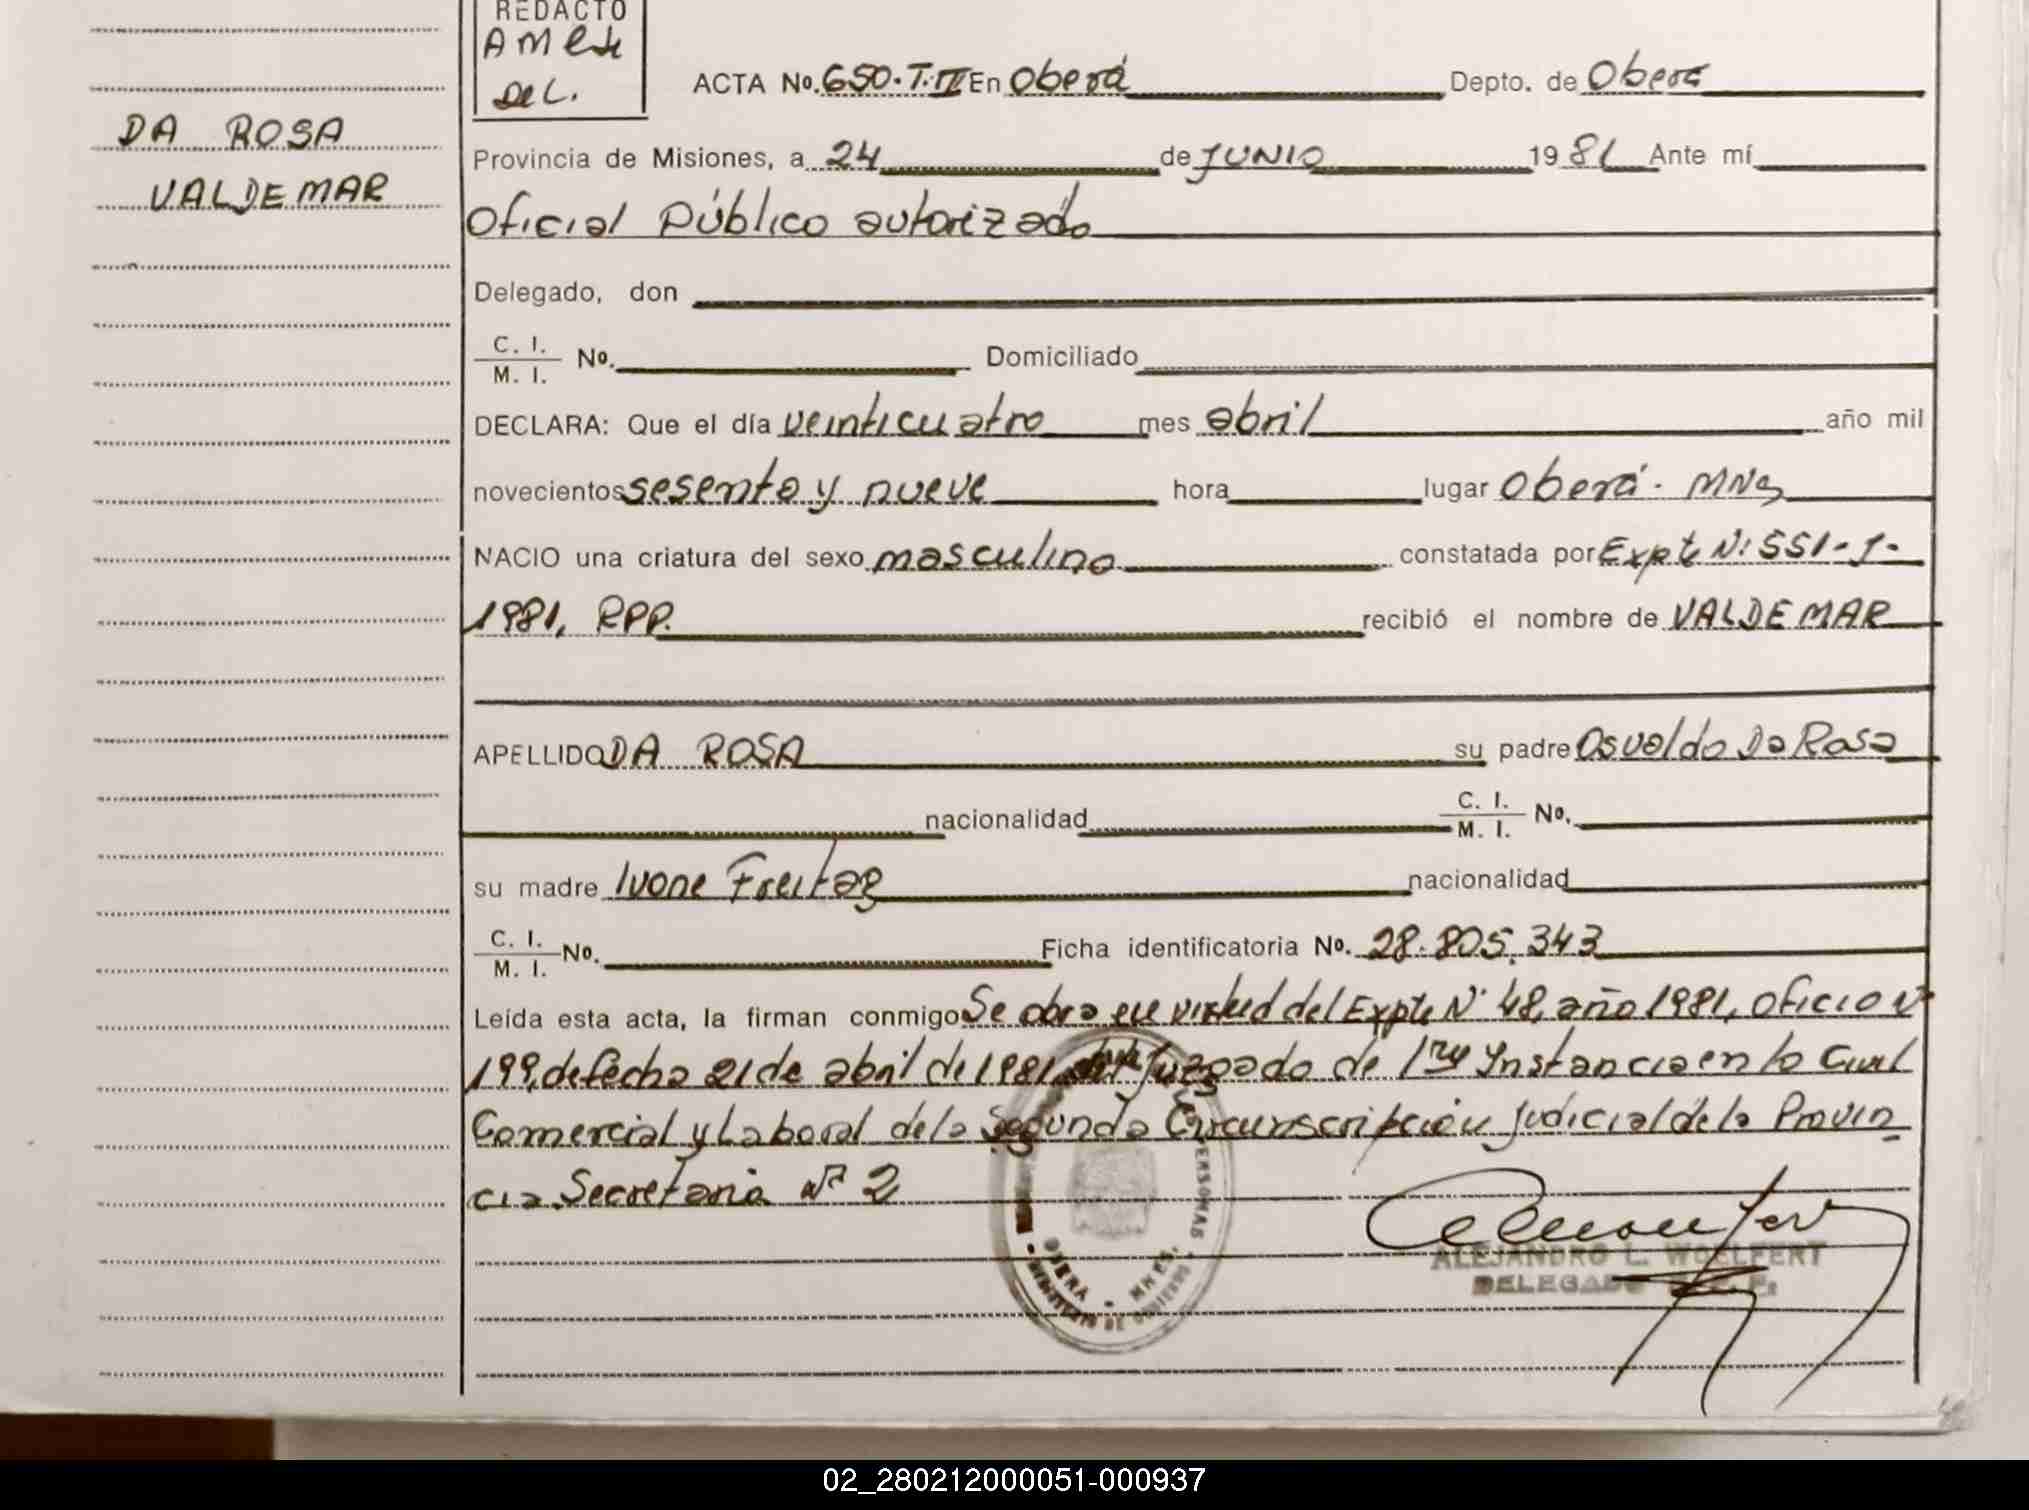 REDACTO
DEL.
ACTA No. 650. T. III En Oberá Depto. de Oberá
DA ROSA
VALDEMAR
Provincia de Misiones, a 24 de JUNIO 1981 Ante mí
Oficial Público autorizado
Delegado, don
C. I.
M. I. No. Domiciliado
DECLARA: Que el día veinticuatro mes abril año mil
novecientos sesenta y nueve hora lugar Oberá. MNes
NACIO una criatura del sexo masculino constatada por Expte N: 551-J-
1981, RPP. recibió el nombre de VALDEMAR
APELLIDO DA ROSA su padre Osvaldo Da Rosa
nacionalidad C. I.
M. I. No.
su madre Ivone Freitag nacionalidad
C. I.
M. I. No. Ficha identificatoria No. 28.805.343
Leída esta acta, la firman conmigo Se obra en virtud del Expte N° 48, año 1981, oficio N°
199, de fecha 21 de abril de 1981, del Juzgado de 1ra Instancia en lo Civil
Comercial y Laboral de la Segunda Circunscripción Judicial de la Provin
cia. Secretaria N° 2
PERSONAS
OBERA - MNES.
MINISTERIO DE GOBIERNO
ALEJANDRO L. WOELFERT
DELEGADO
02_280212000051-000937